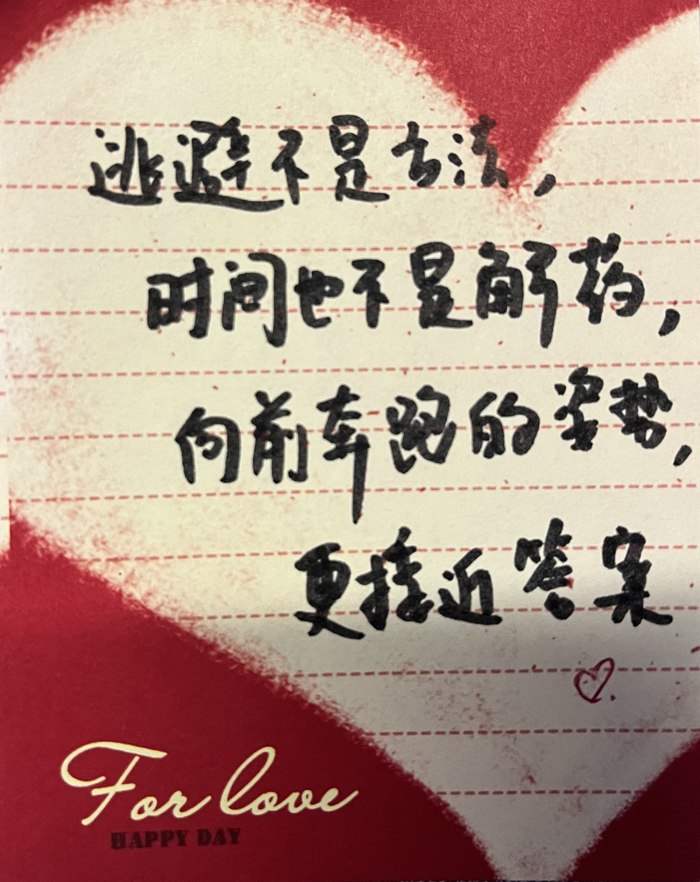 逃避不是方法，
时间也不是解药，
向前奔跑的姿势，
更接近答案
For love
HAPPY DAY